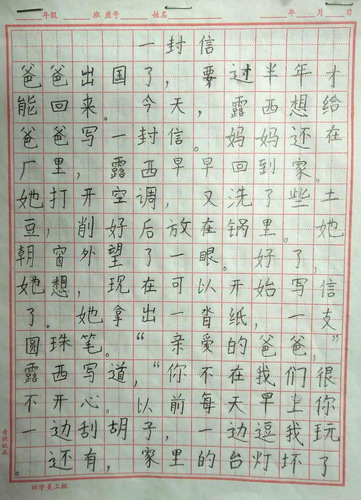 年级 班 座号 姓名 年 月 日
一封信
爸爸出国了，要过半年才
能回来。今天，露西想给
爸爸写一封信。妈妈还在
厂里，露西早早回到家。
她打开空调，又洗了些土
豆，削好后放在锅里。她
朝窗外望了一眼。好了，
她想，现在可以开始写信
了。她拿出一沓纸，一支
圆珠笔。“亲爱的爸爸，”
露西写道，“你不在我们很
不开心。以前每天早上你
一边刮胡子，一边逗我玩
还有，家里的台灯坏了